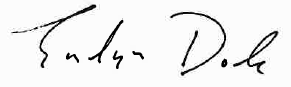 Evelyn Dole